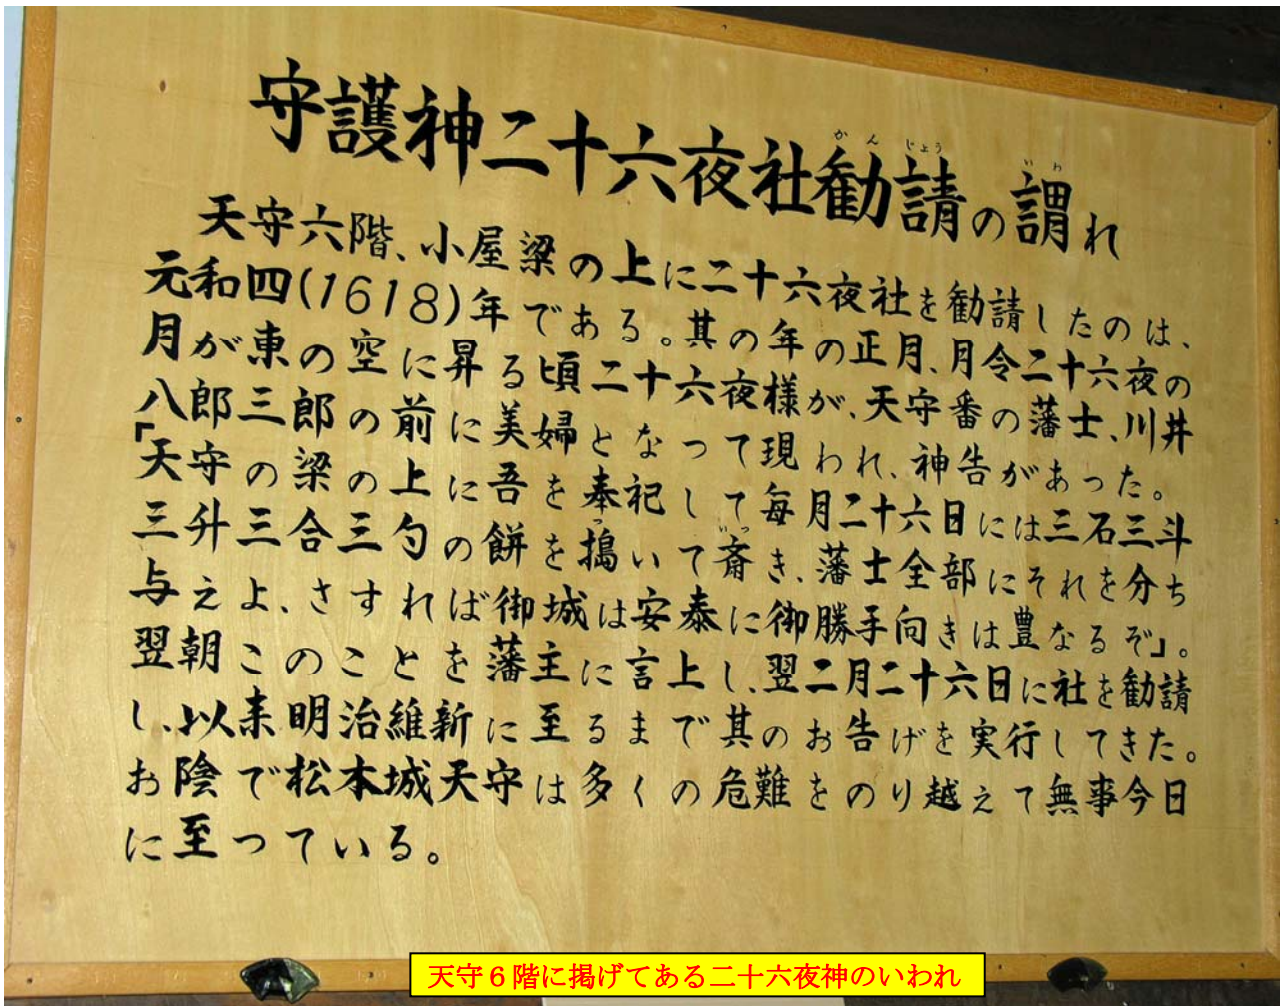 守護神二十六夜社勧請の謂れ
かんじょう
いわ
天守六階、小屋梁の上に二十六夜社を勧請したのは、
元和四(1618)年である。其の年の正月、月令二十六夜の
月が東の空に昇る頃二十六夜様が、天守番の藩士、川井
八郎三郎の前に美婦となって現われ、神告があった。
「天守の梁の上に吾を奉祀して毎月二十六日には三石三斗
三升三合三勺の餅を搗いて斎き、藩士全部にそれを分ち
つ
いつ
与えよ、さすれば御城は安泰に御勝手向きは豊なるぞ」。
翌朝このことを藩主に言上し、翌二月二十六日に社を勧請
し、以来明治維新に至るまで其のお告げを実行してきた。
お陰で松本城天守は多くの危難をのり越えて無事今日
に至っている。
天守6階に掲げてある二十六夜神のいわれ